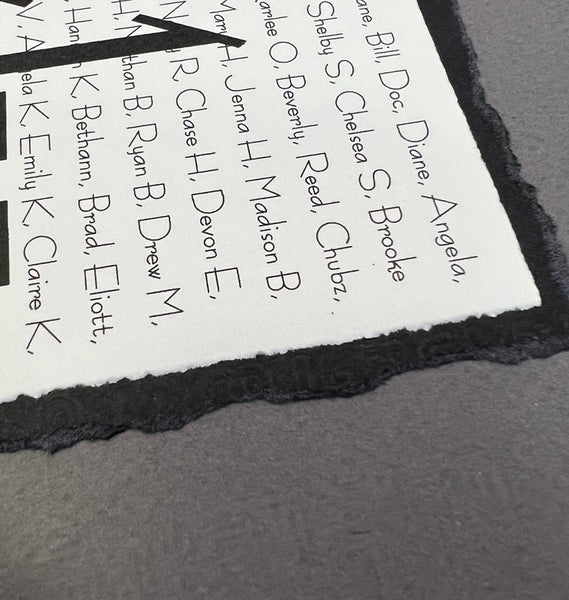 Bill, Doc, Diane, Angela,
Shelby S, Chelsea S, Brooke
O, Beverly, Reed, Chubz,.
H, Jenna H, Madison B,
R Chase H, Devon E,
H, B, Ryan B, Drew M,
K, Bethann, Brad, Eliott,
V K, Emily K, Claire K,